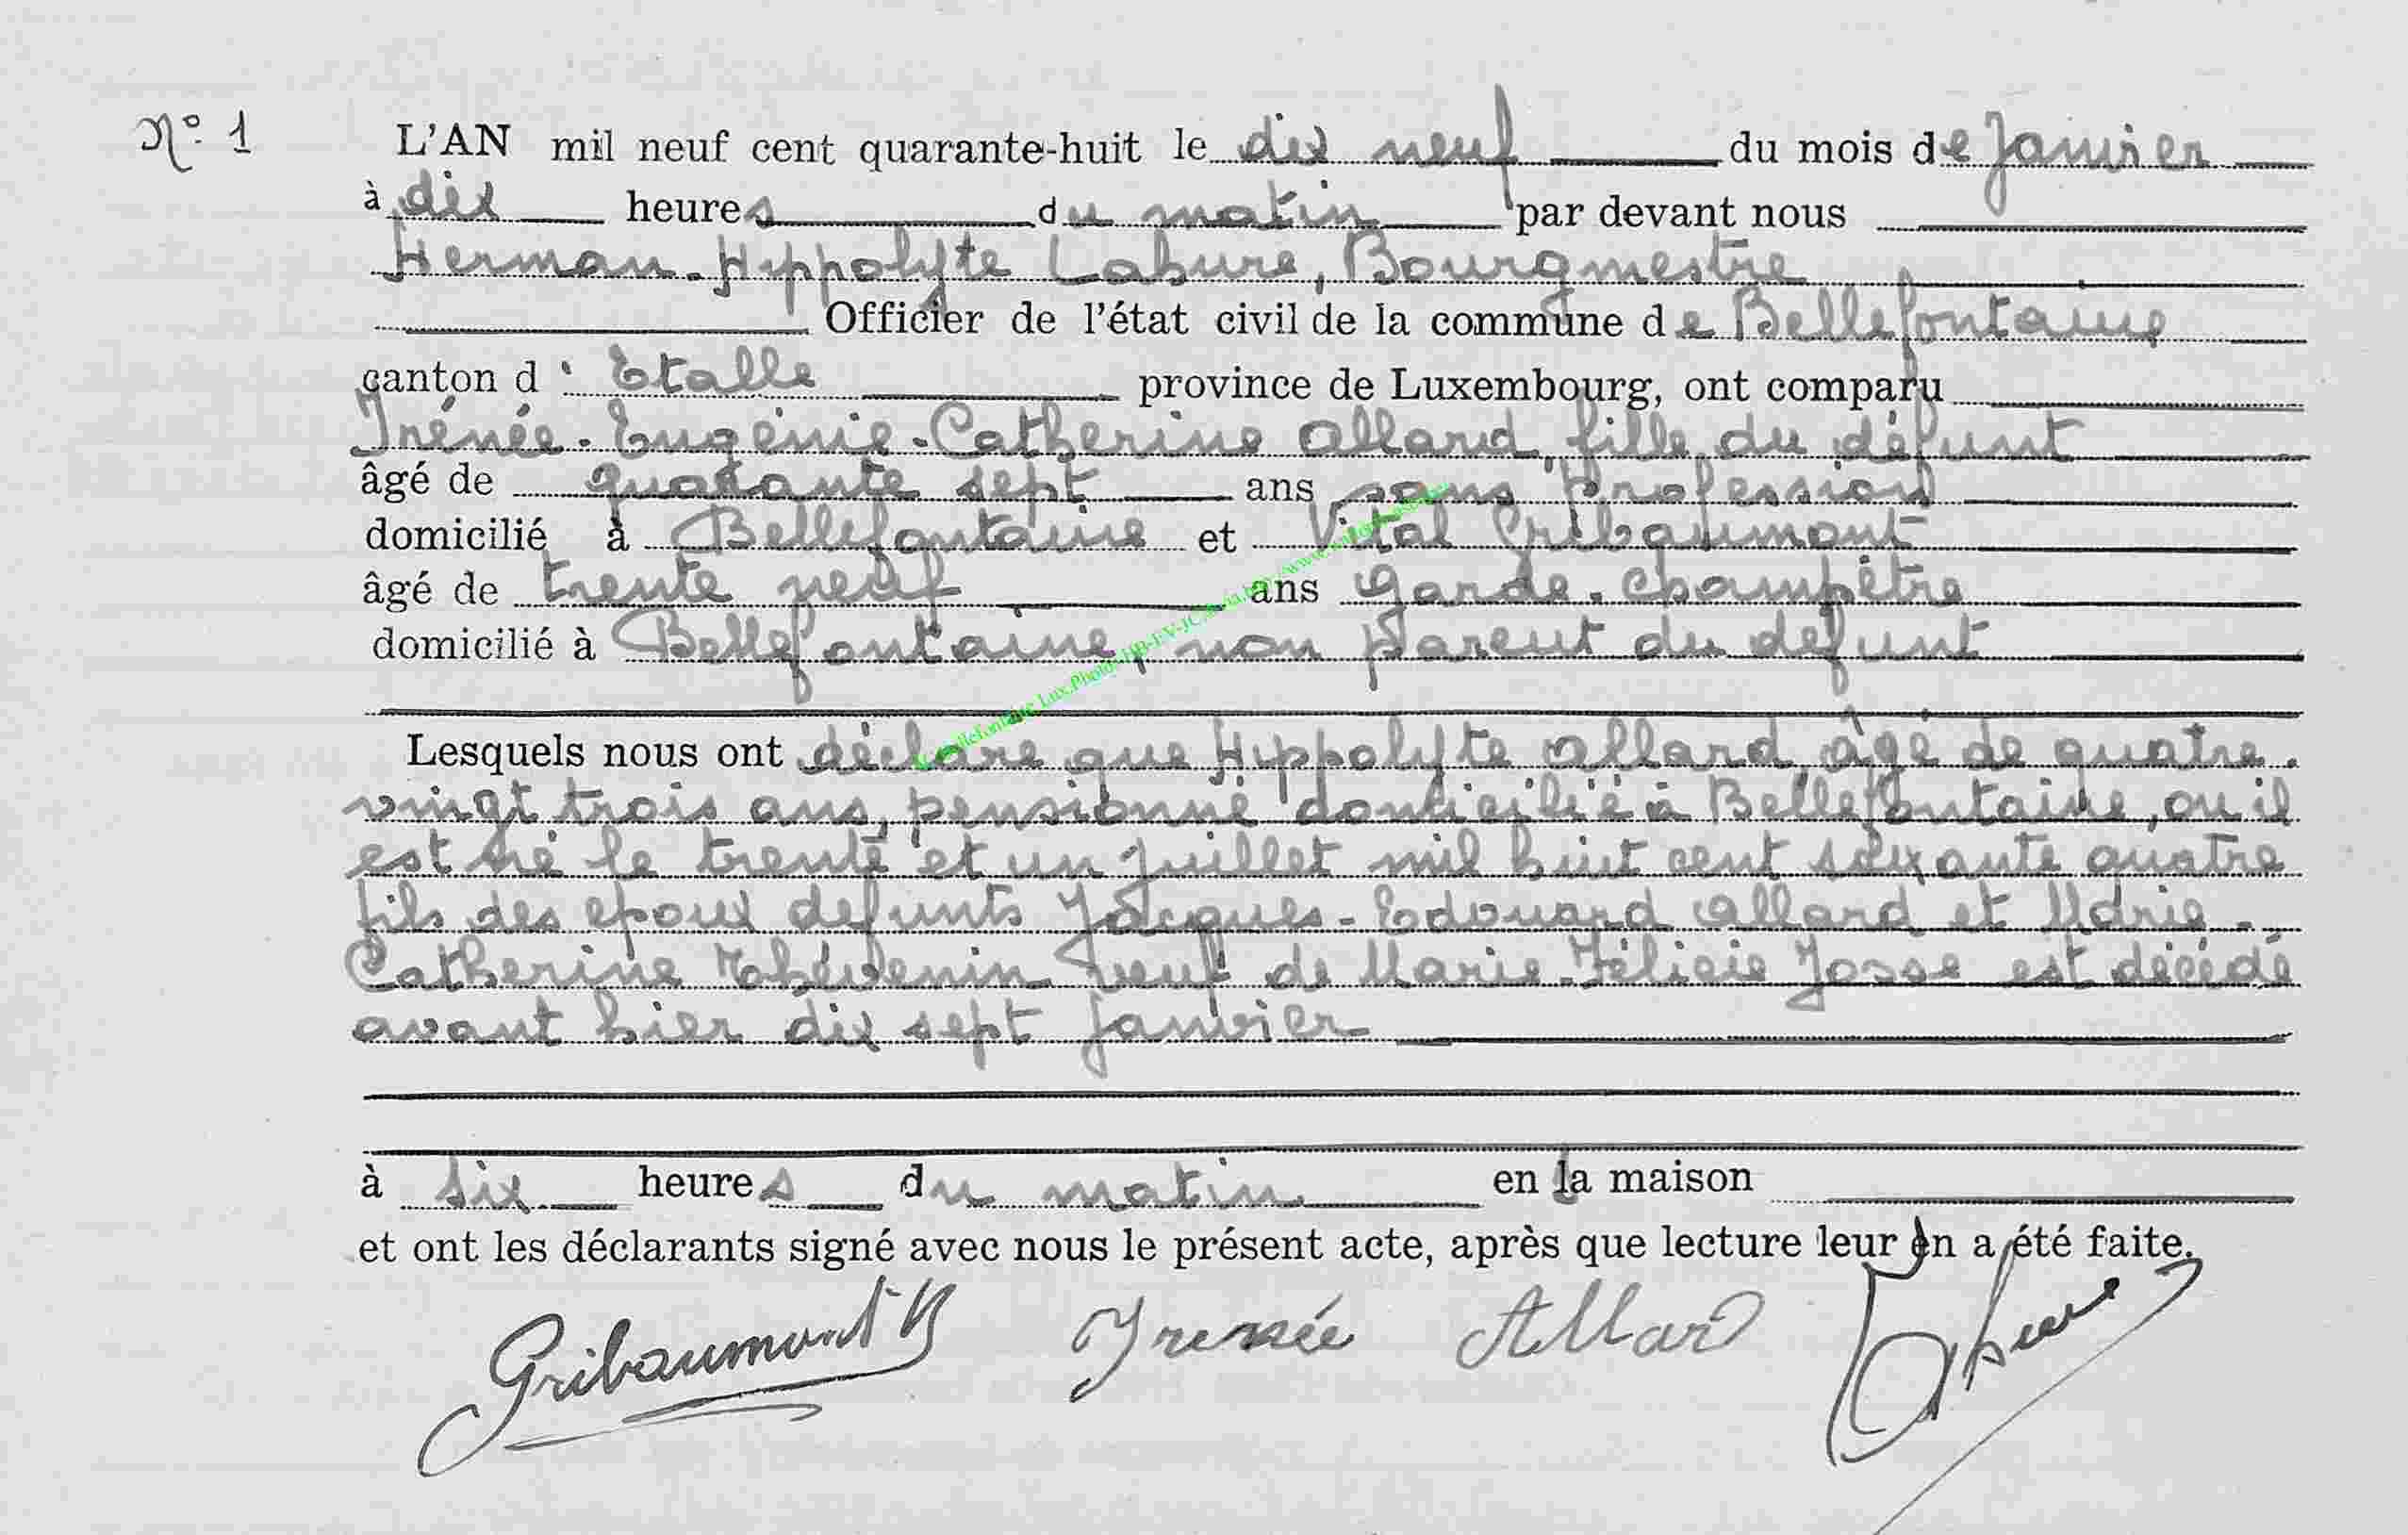 N° 1
L'AN mil neuf cent quarante-huit le dix neuf du mois de Janvier
à dix heures du matin par devant nous
Herman-Hippolyte Labure, Bourgmestre
Officier de l'état civil de la commune de Bellefontaine
canton d'Etalle province de Luxembourg, ont comparu
Irénée-Eugénie-Catherine Allard, fille du défunt
âgé de quarante sept ans sans Profession
domicilié à Bellefontaine et Vital Gribaumont
âgé de trente neuf ans Garde-champêtre
domicilié à Bellefontaine, non parent du defunt
Lesquels nous ont déclaré que Hippolyte Allard, âgé de quatre-
vingt trois ans, pensionné domicilié à Bellefontaine, ou il
est né le trente et un juillet mil huit cent soixante quatre
fils des epoux defunts Jacques-Edouard Allard et Marie-
Catherine Thévenin veuf de Marie-Félicie Josse est décédé
avant hier dix sept janvier
à six heures du matin en la maison
et ont les déclarants signé avec nous le présent acte, après que lecture leur en a été faite.
Gribaumont V Irenée Allard